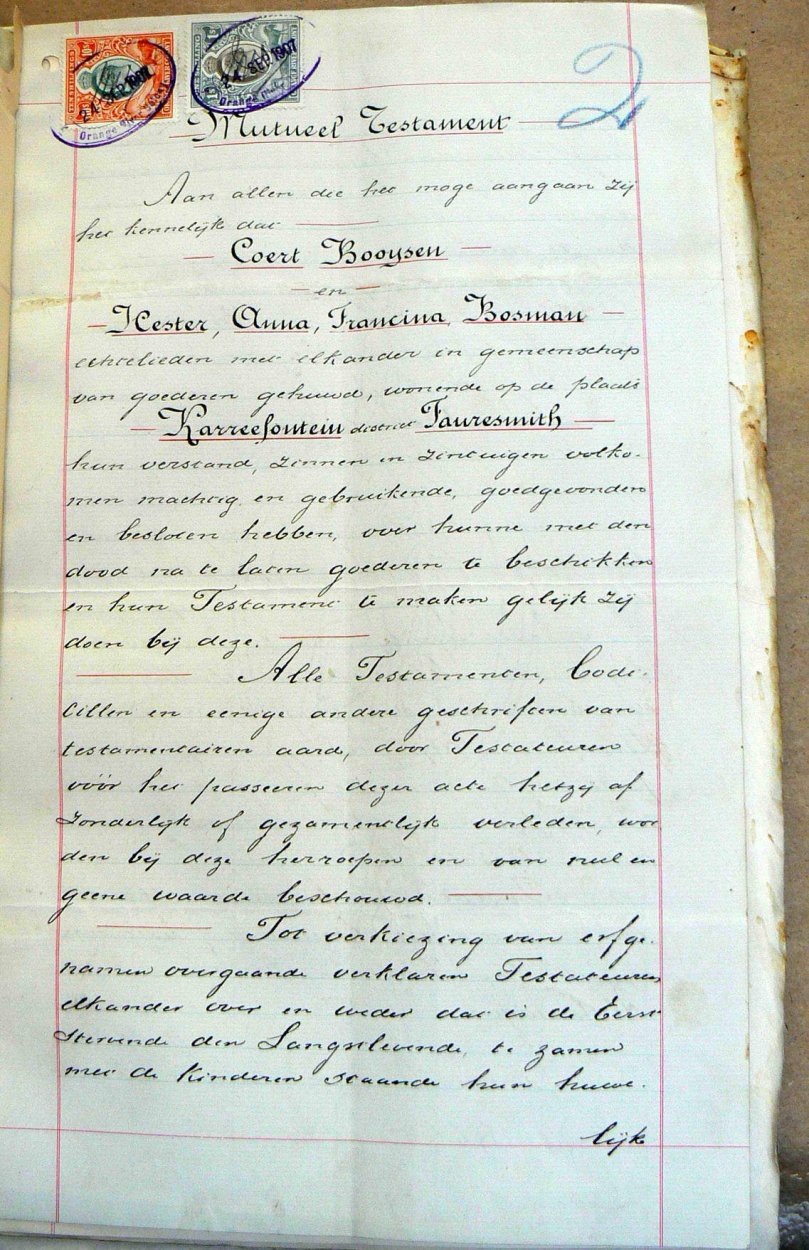 24 SEP 1907
Orange River
24 SEP 1907
Orange
2
Mutueel Testament
Aan allen die het moge aangaan zij
het kennelijk dat
Coert Booysen
en
Hester, Anna, Francina, Bosman
echtelieden met elkander in gemeenschap
van goederen gehuwd, wonende op de plaats
Karreefontein district Fauresmith
hun verstand, zinnen en zintuigen volko-
men machtig en gebruikende, goedgevonden
en besloten hebben, over hunne met den
dood na te laten goederen te beschikken
en hun Testament te maken gelijk zij
doen bij deze.
Alle Testamenten, Codi-
cillen en eenige andere geschriften van
testamentairen aard, door Testateuren
vóór het passeeren dezer acte hetzij af
zonderlijk of gezamentlijk verleden, wor
den bij deze herroepen en van nul en
geene waarde beschouwd.
Tot verkiezing van erfge-
namen overgaande verklaren Testateuren
elkander over en weder dat is de Eerst
stervende den Langstlevende, te zamen
met de kinderen staande hun huwe-
lijk